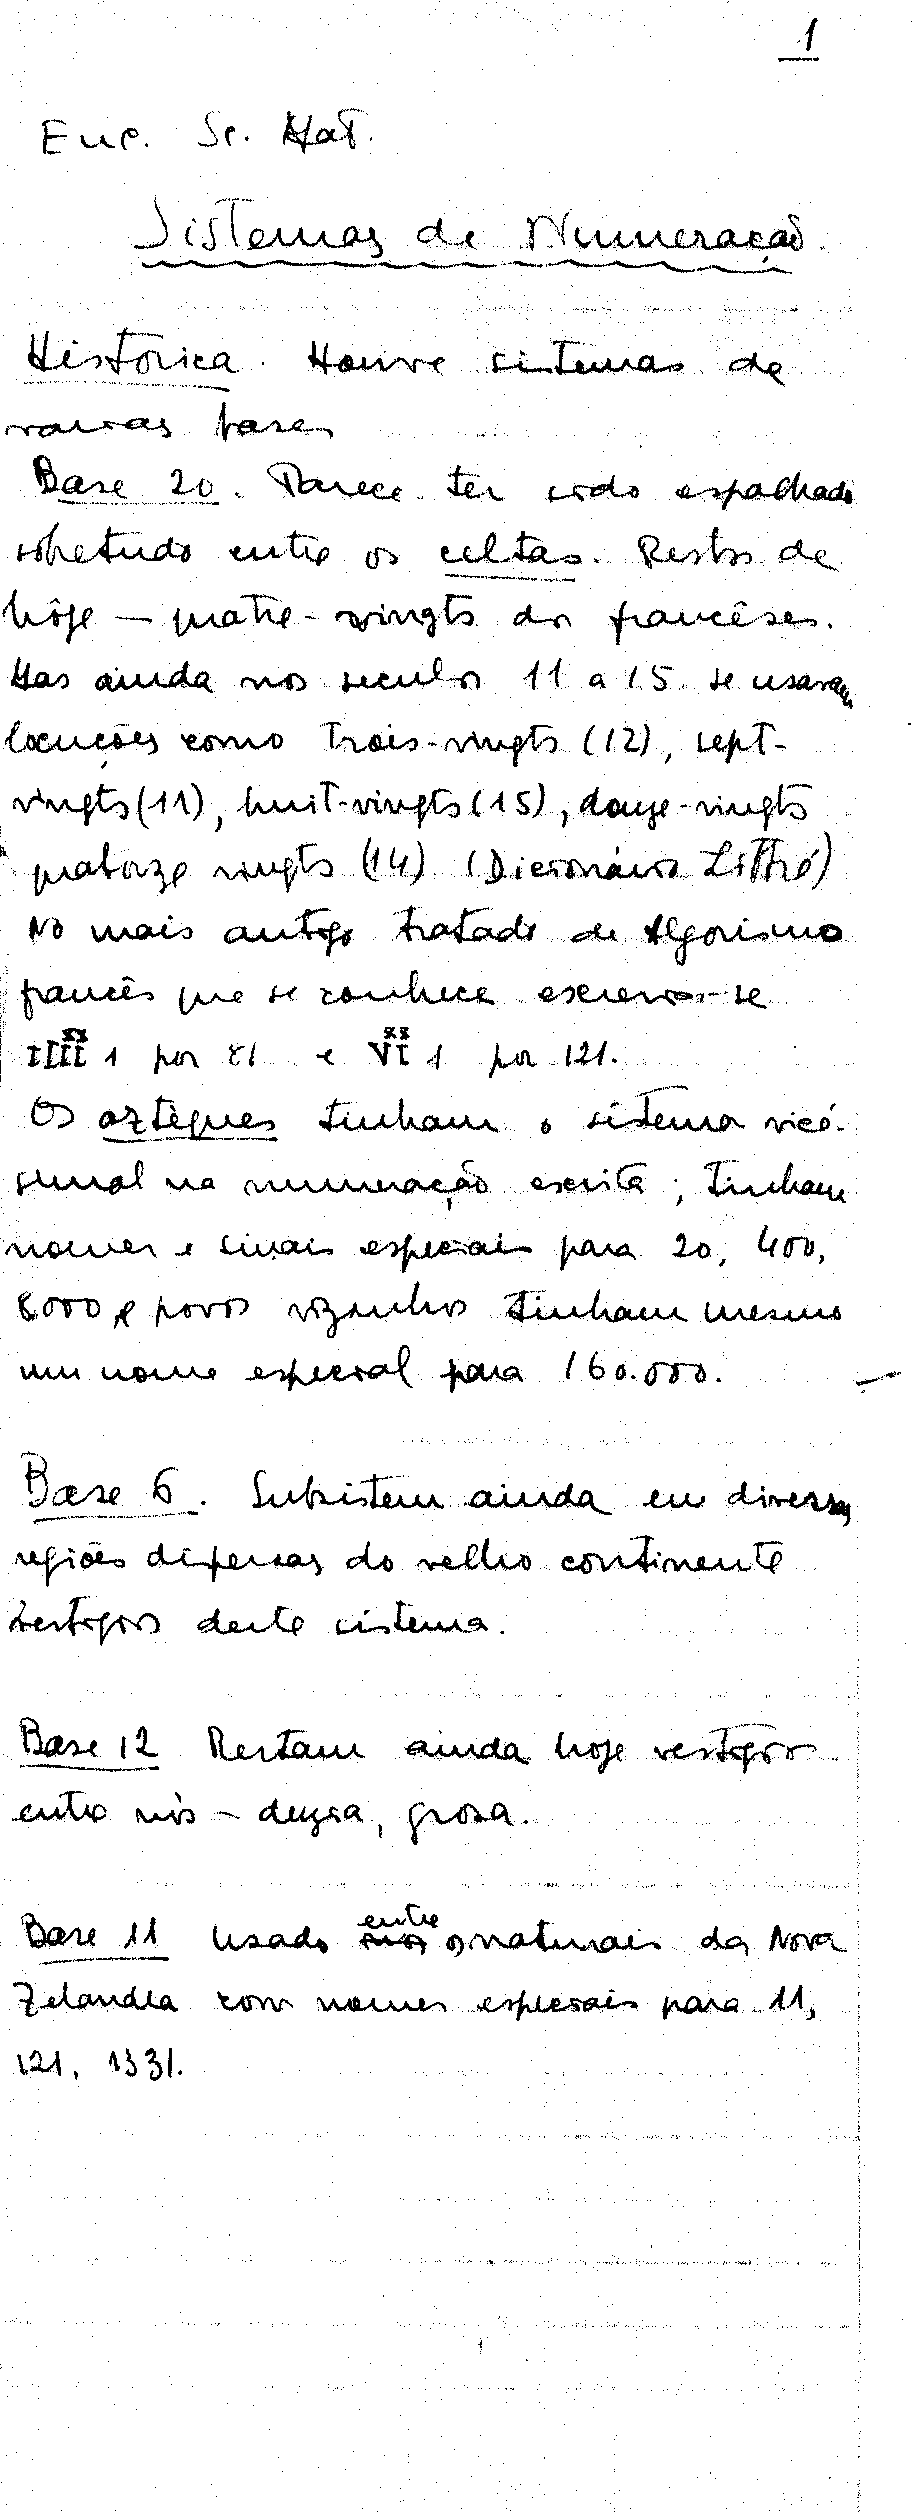 1
Enc. Sc. Mat.
Sistemas de Numeração
Histórica. Houve sistemas de
varias bases
Base 20. Parece ter sido espalhado
sobretudo entre os celtas. Restos de
hôje — quatre-vingts dos francêses.
Mas ainda nos seculos 11 a 15 se usavam
locuções como trois-vingts (12), sept-
vingts (11), huit-vingts (15), douze-vingts
quatorze vingts (14) (Dicionário Littré)
No mais antigo tratado de Algorismo
francês que se conhece escreve-se
IIII XX 1 por 81 e VI XX 1 por 121.
Os aztèques tinham o sistema vicé-
simal na numeração escrita; tinham
nomes e sinais especiais para 20, 400,
8000 e povos vizinhos tinham mesmo
um nome especial para 160.000.
Base 6. Subsistem ainda em diversas
regiões dispersas do velho continente
vestigios deste sistema.
Base 12 Restam ainda hoje vestigios
entre nós — duzia, grosa.
Base 11 Usado entre os naturais da Nova
Zelandia com nomes especiais para 11,
121, 1331.